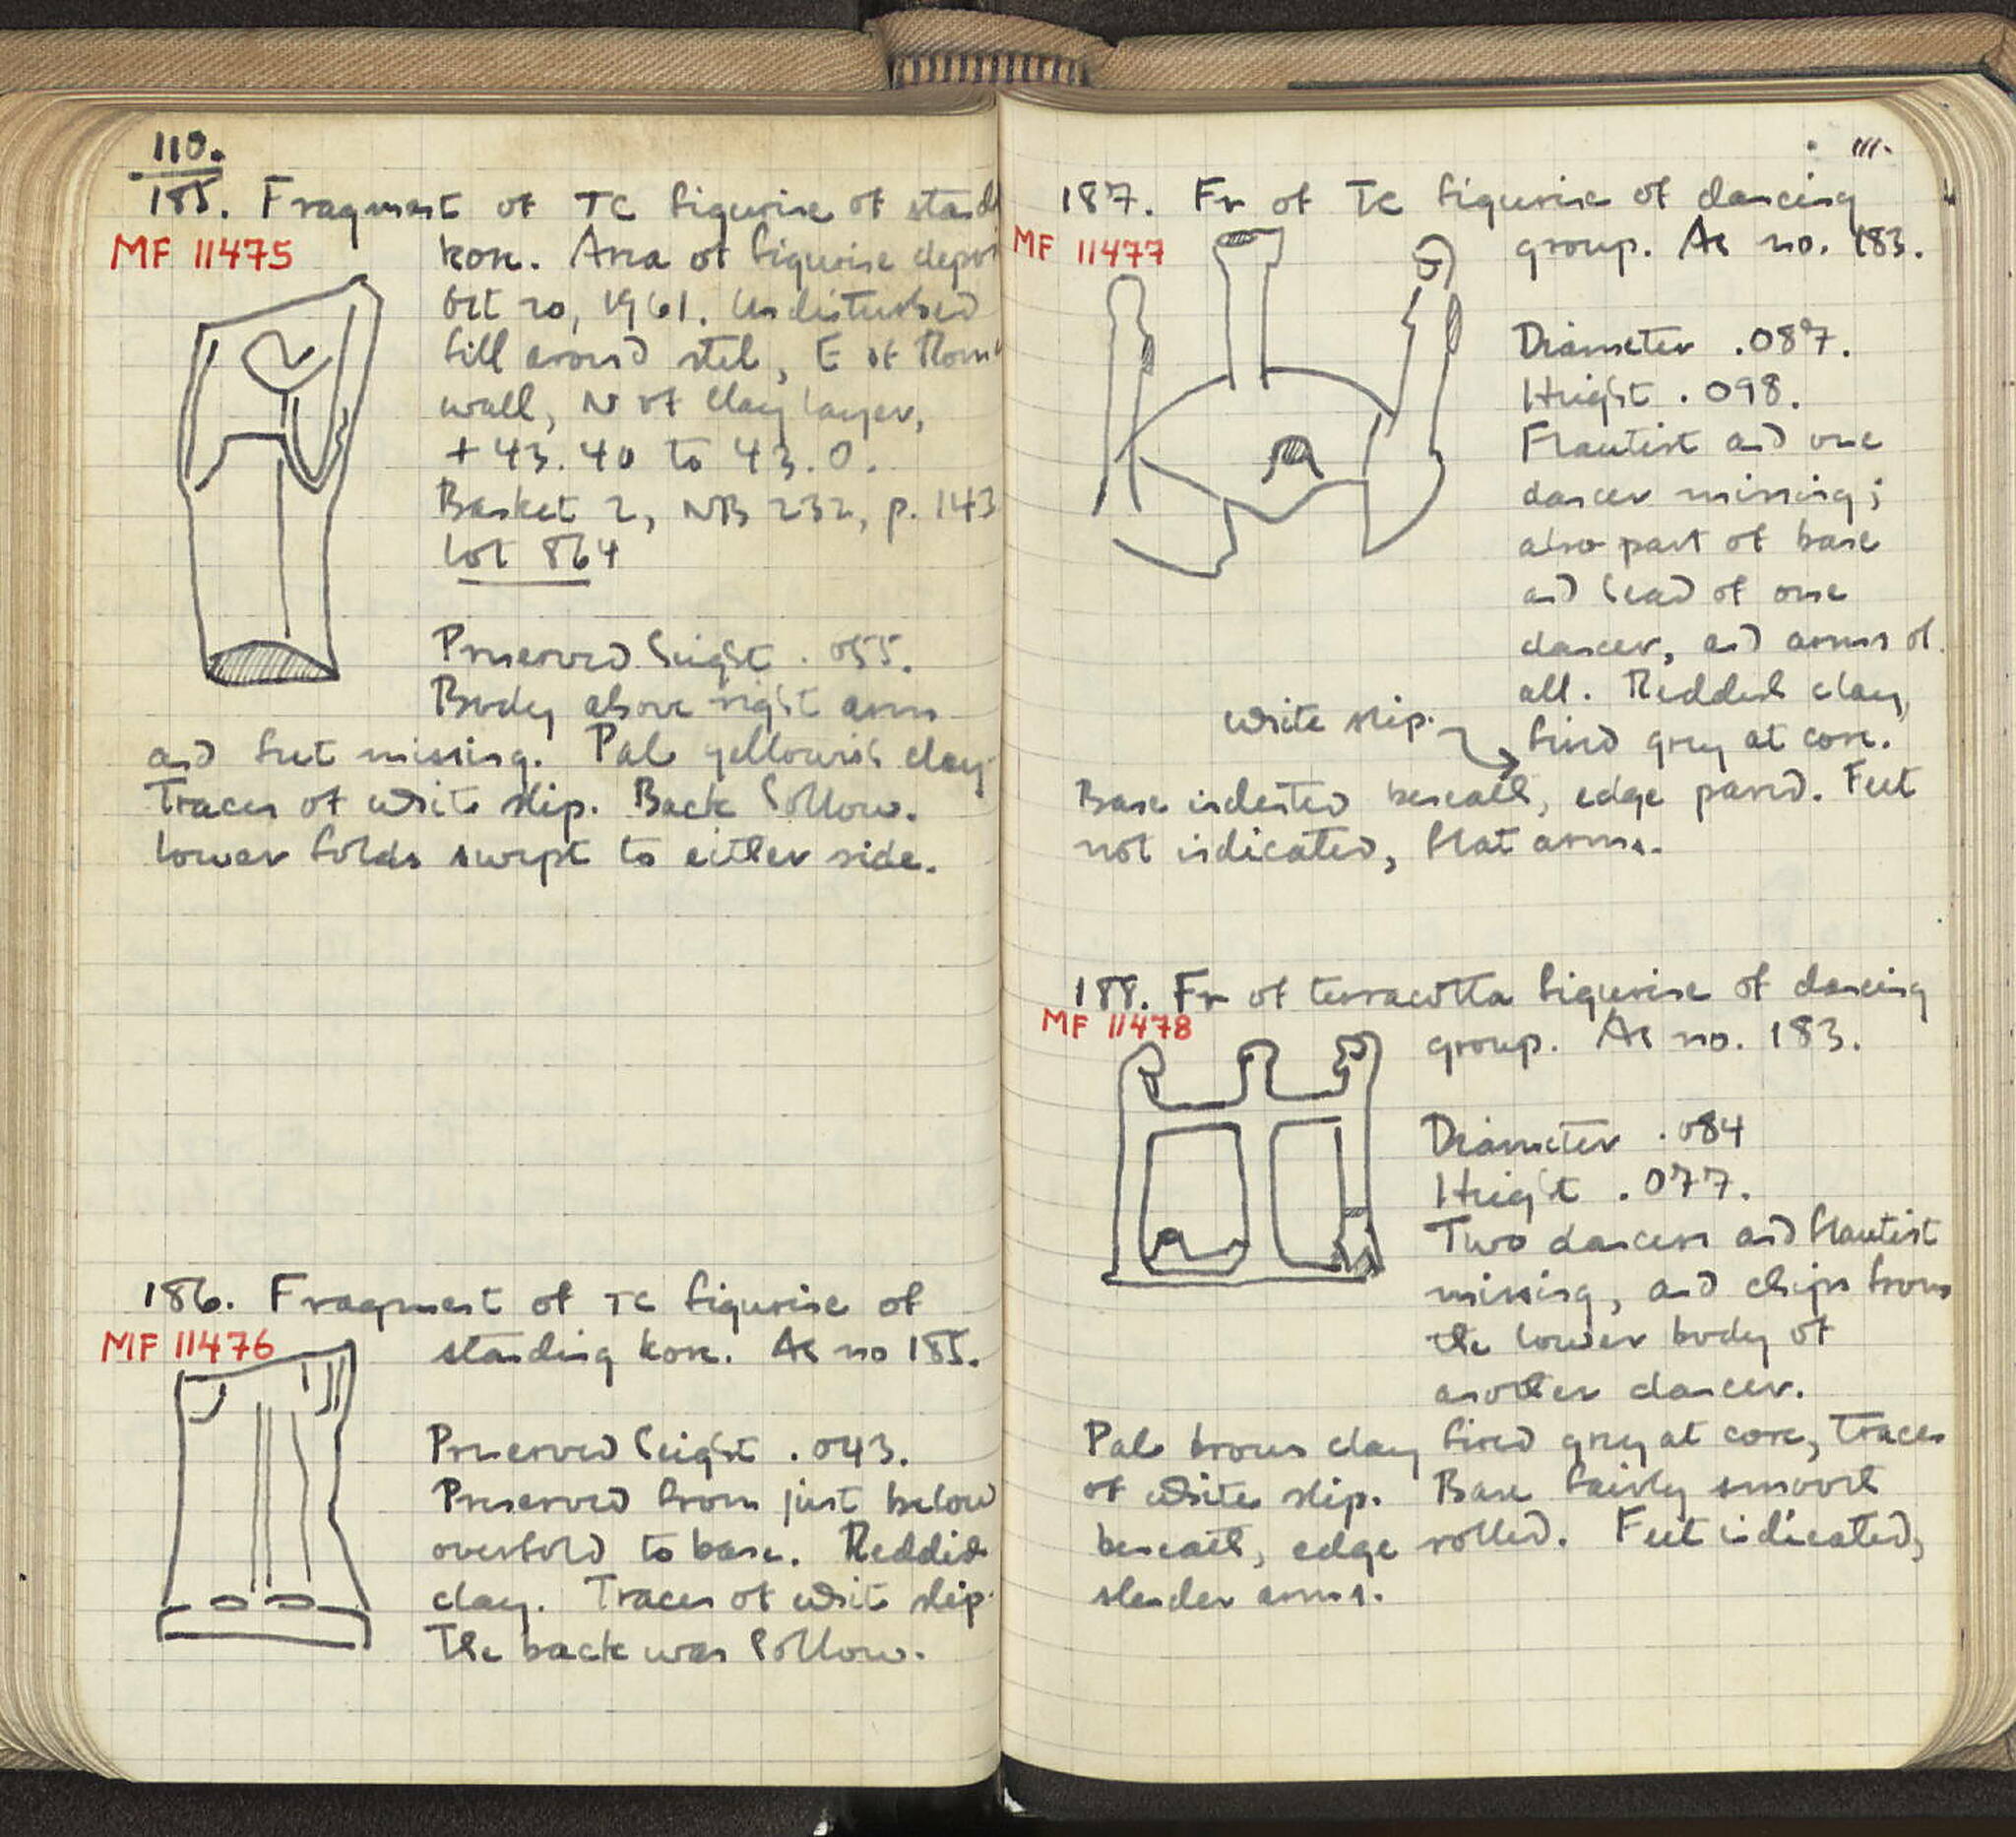 110.
185. Fragment of TC figurine of stand
MF 11475
kore. Area of figurine depos
Oct 20, 1961. Undisturbed
fill around stel, E of Roma
wall, N of Clay layer,
+43.40 to 43.0.
Basket 2, NB 232, p. 143
Lot 864
Preserved height .055.
Body above right arm
and feet missing. Pale yellowish clay
Traces of white slip. Back hollow.
Lower folds swept to either side.
186. Fragment of TC figurine of
MF 11476
standing kore. As no 185.
Preserved height .043.
Preserved from just below
overfold to base. Reddish
clay. Traces of white slip.
The back was hollow.
111.
187. Fr of TC figurine of dancing
MF 11477
group. As no. 183.
Diameter .087.
Height .098.
Flautist and one
dancer missing;
also part of base
and head of one
dancer, and arms of
all. Reddish clay,
white slip.
fired grey at core.
Base indented beneath, edge pared. Feet
not indicated, flat arms.
188. Fr of terracotta figurine of dancing
MF 11478
group. As no. 183.
Diameter .084
Height .077.
Two dancers and flautist
missing, and chips from
the lower body of
another dancer.
Pale brown clay fired grey at core, Traces
of white slip. Base fairly smooth
beneath, edge rolled. Feet indicated,
slender arms.